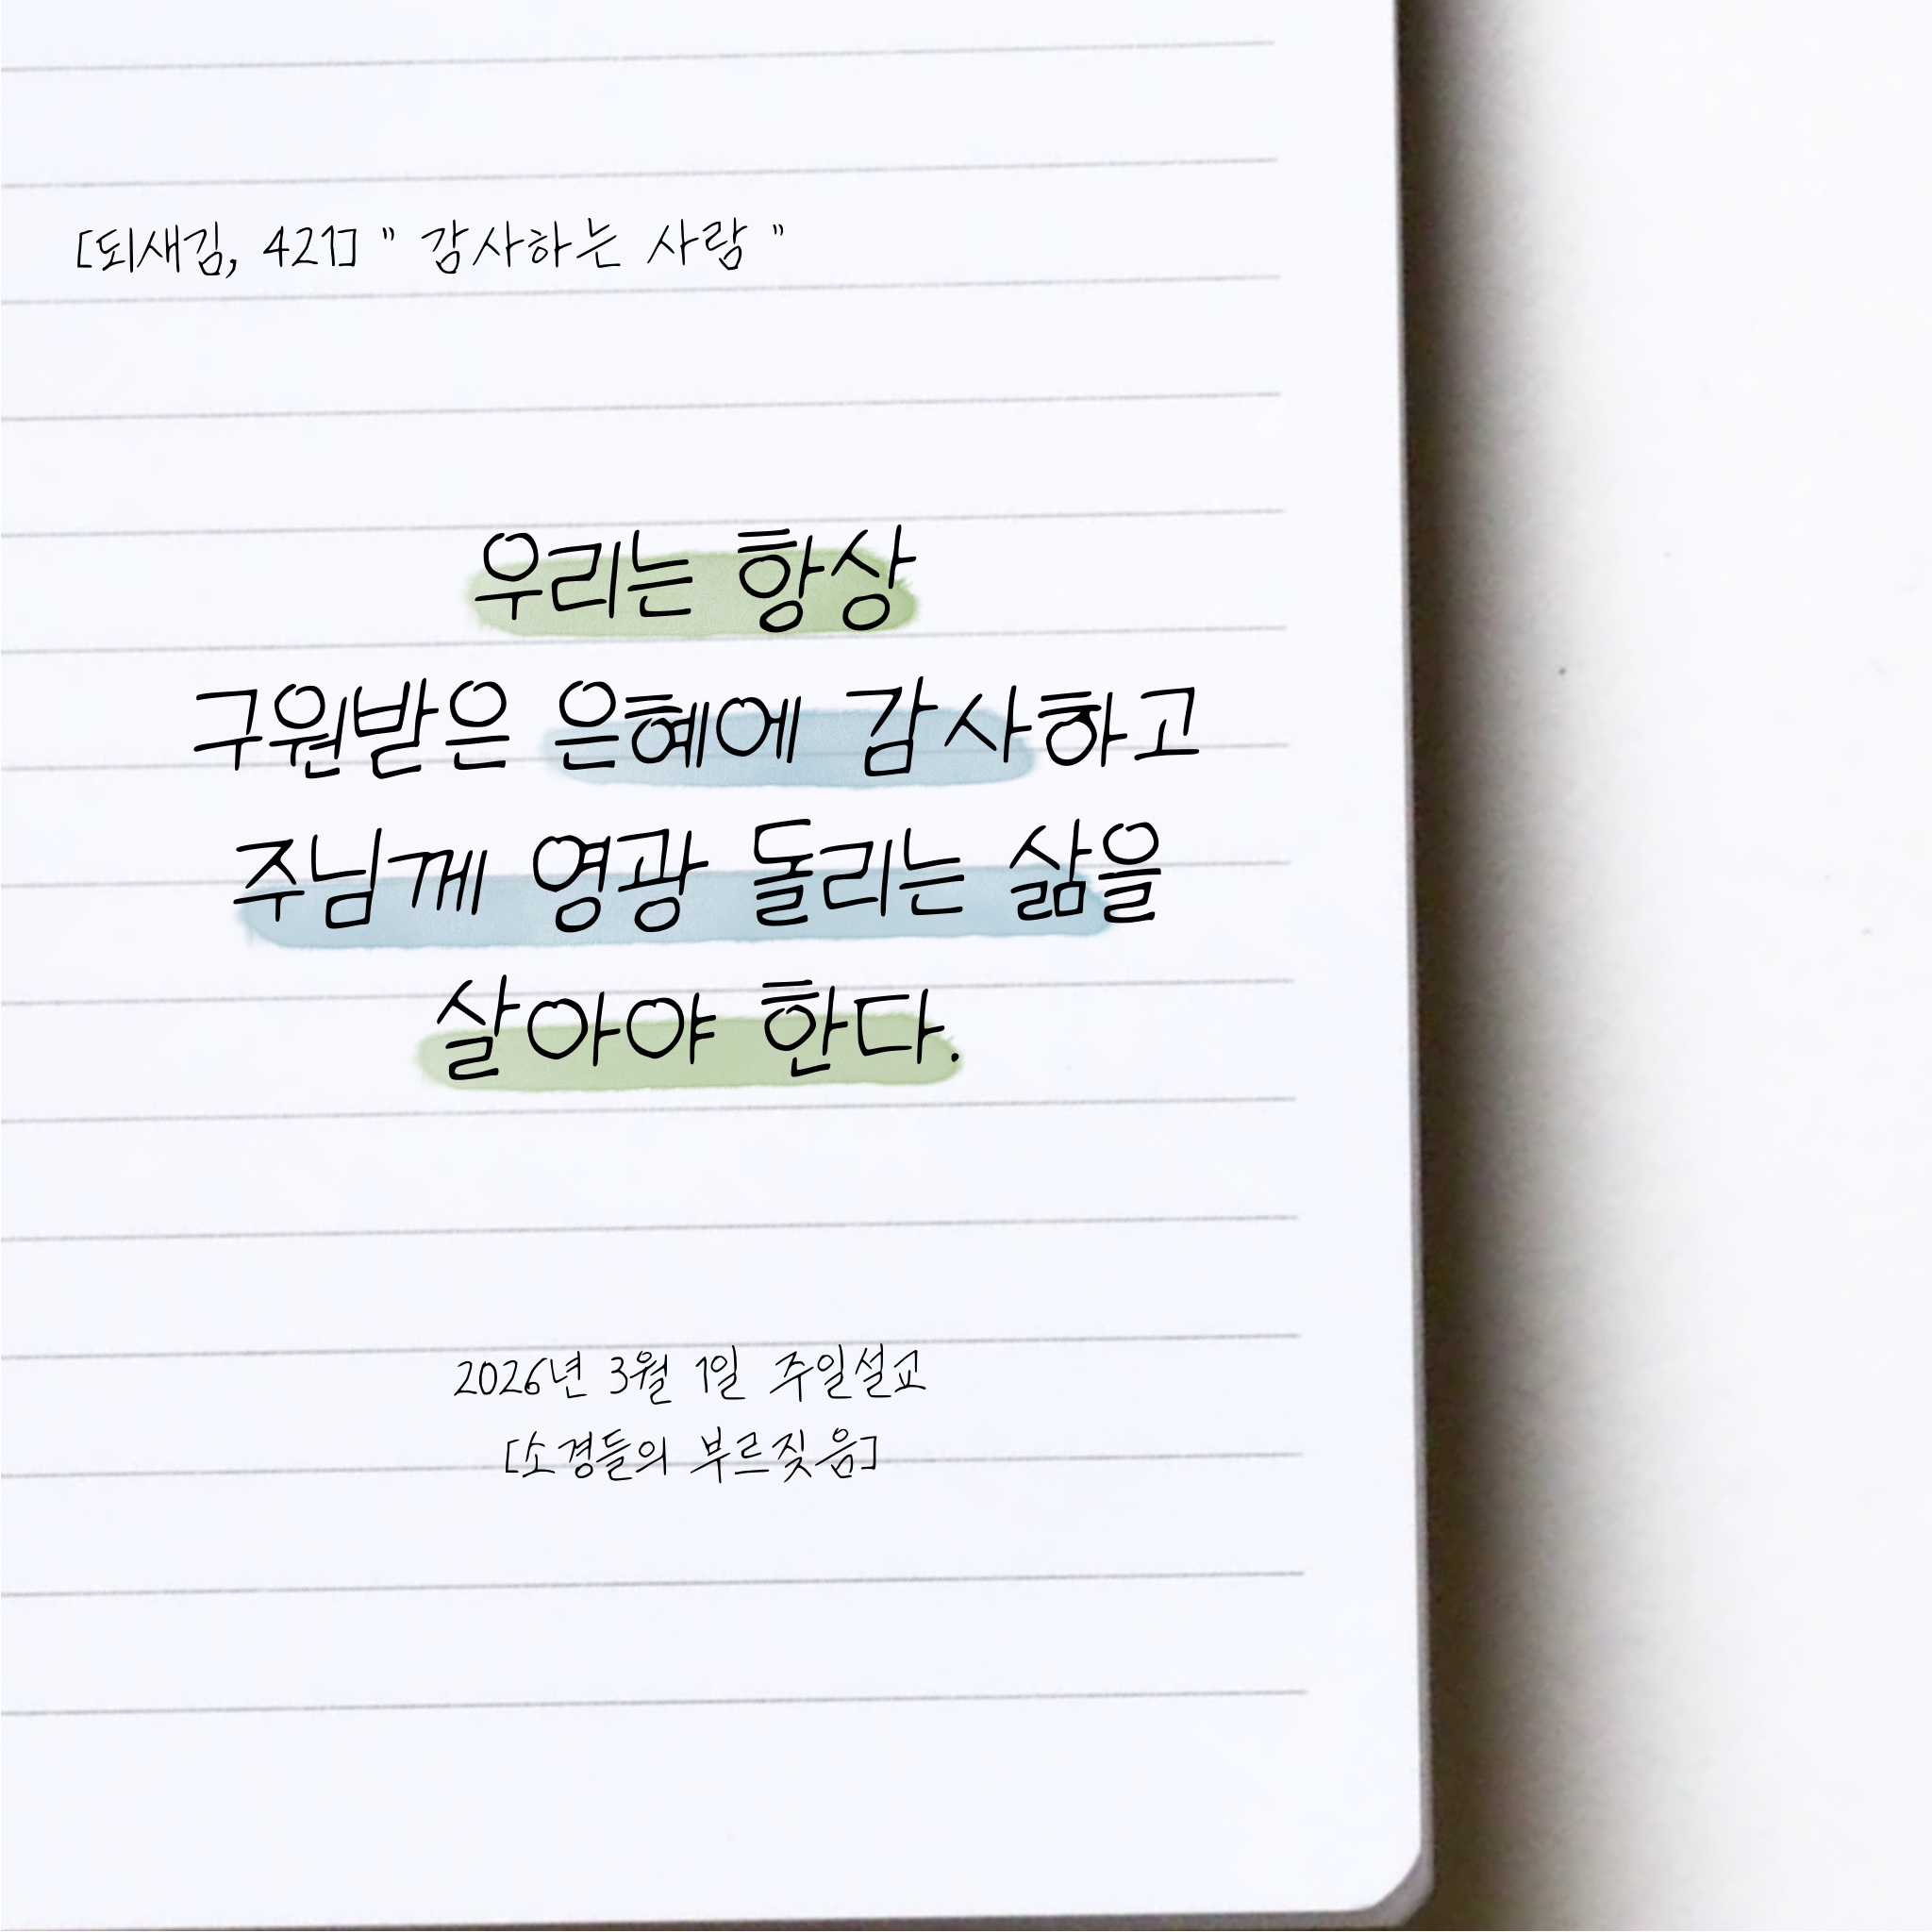 [되새김, 421] " 감사하는 사람 "
우리는 항상
구원받은 은혜에 감사하고
주님께 영광 돌리는 삶을
살아야 한다.
2026년 3월 1일 주일설교
[소경들의 부르짖음]